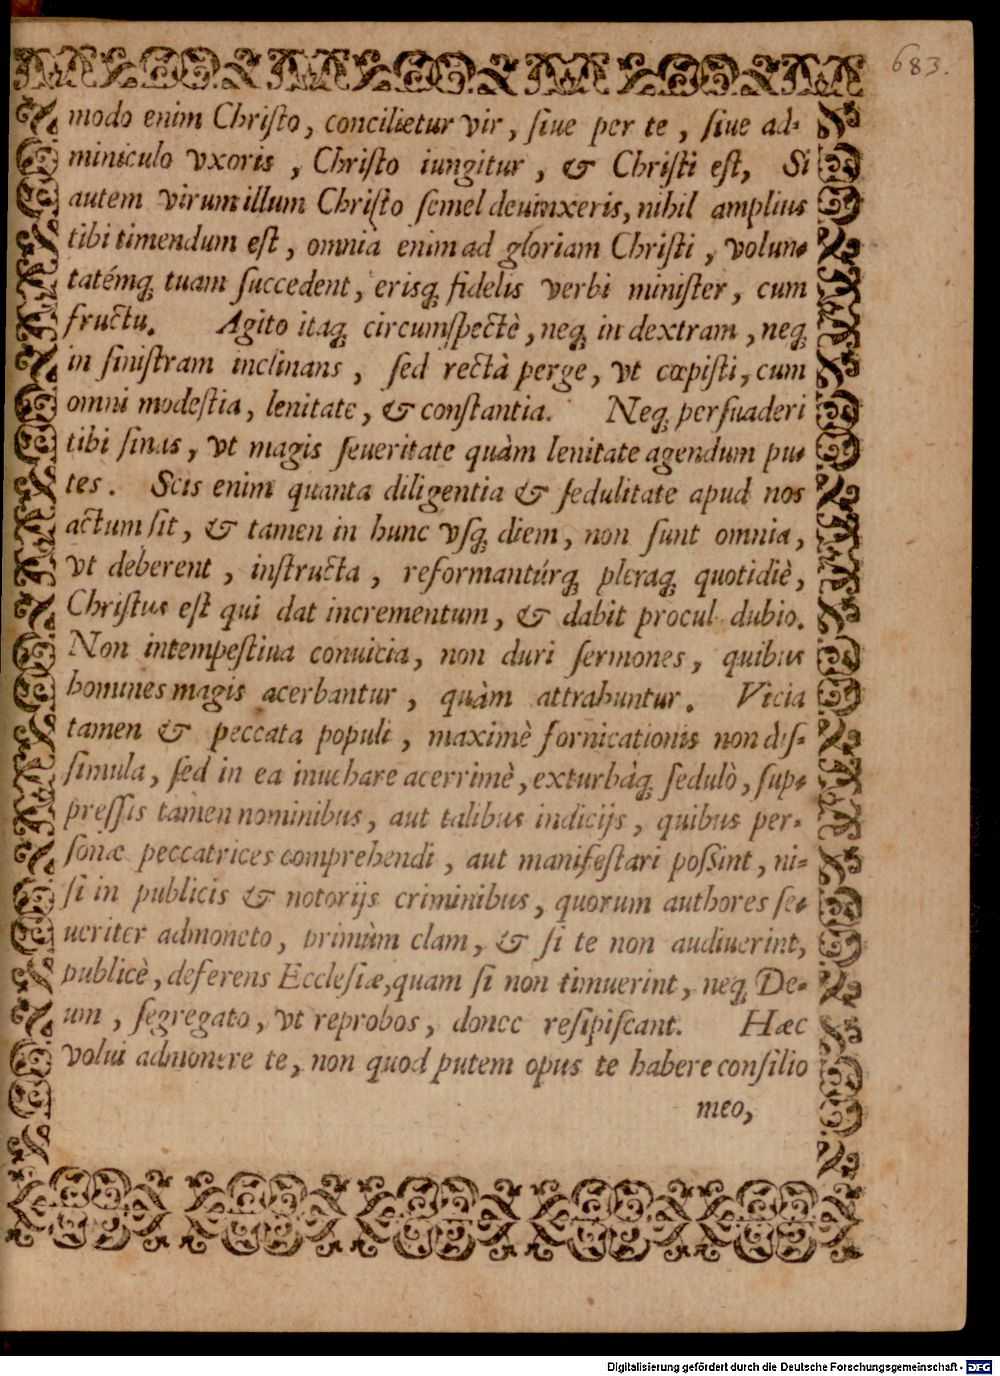 683.
modo enim Chriſto, concilietur vir, ſiue per te, ſiue ad-
miniculo vxoris, Chriſto iungitur, & Chriſti eſt, Si
autem virum illum Chriſto ſemel deuinxeris, nihil amplius
tibi timendum eſt, omnia enim ad gloriam Chriſti, volun-
tatémq́; tuam ſuccedent, erisq́; fidelis verbi miniſter, cum
fructu. Agito itaq́; circumſpectè, neq́; in dextram, neq́;
in ſiniſtram inclinans, ſed rectà perge, vt cœpiſti, cum
omni modeſtia, lenitate, & conſtantia. Neq́; perſuaderi
tibi ſinas, vt magis ſeueritate quàm lenitate agendum pu-
tes. Scis enim quanta diligentia & ſedulitate apud nos
actum ſit, & tamen in hunc vſq́; diem, non ſunt omnia,
vt deberent, inſtructa, reformantúrq́; pleraq́; quotidiè,
Chriſtus eſt qui dat incrementum, & dabit procul dubio.
Non intempeſtiua conuicia, non duri ſermones, quibus
homines magis acerbantur, quàm attrahuntur. Vicia
tamen & peccata populi, maximè fornicationis non diſ-
ſimula, ſed in ea inuehare acerrimè, exturbáq́; ſedulò, ſup-
preſſis tamen nominibus, aut talibus indicijs, quibus per-
ſonæ peccatrices comprehendi, aut manifeſtari poſſint, ni-
ſi in publicis & notorijs criminibus, quorum authores ſe-
ueriter admoneto, primùm clam, & ſi te non audiuerint,
publicè, deferens Eccleſiæ, quam ſi non timuerint, neq́; De-
um, ſegregato, vt reprobos, donec reſipiſcant. Hæc
volui admonere te, non quod putem opus te habere conſilio
meo,
Digitalisierung gefördert durch die Deutsche Forschungsgemeinschaft - DFG